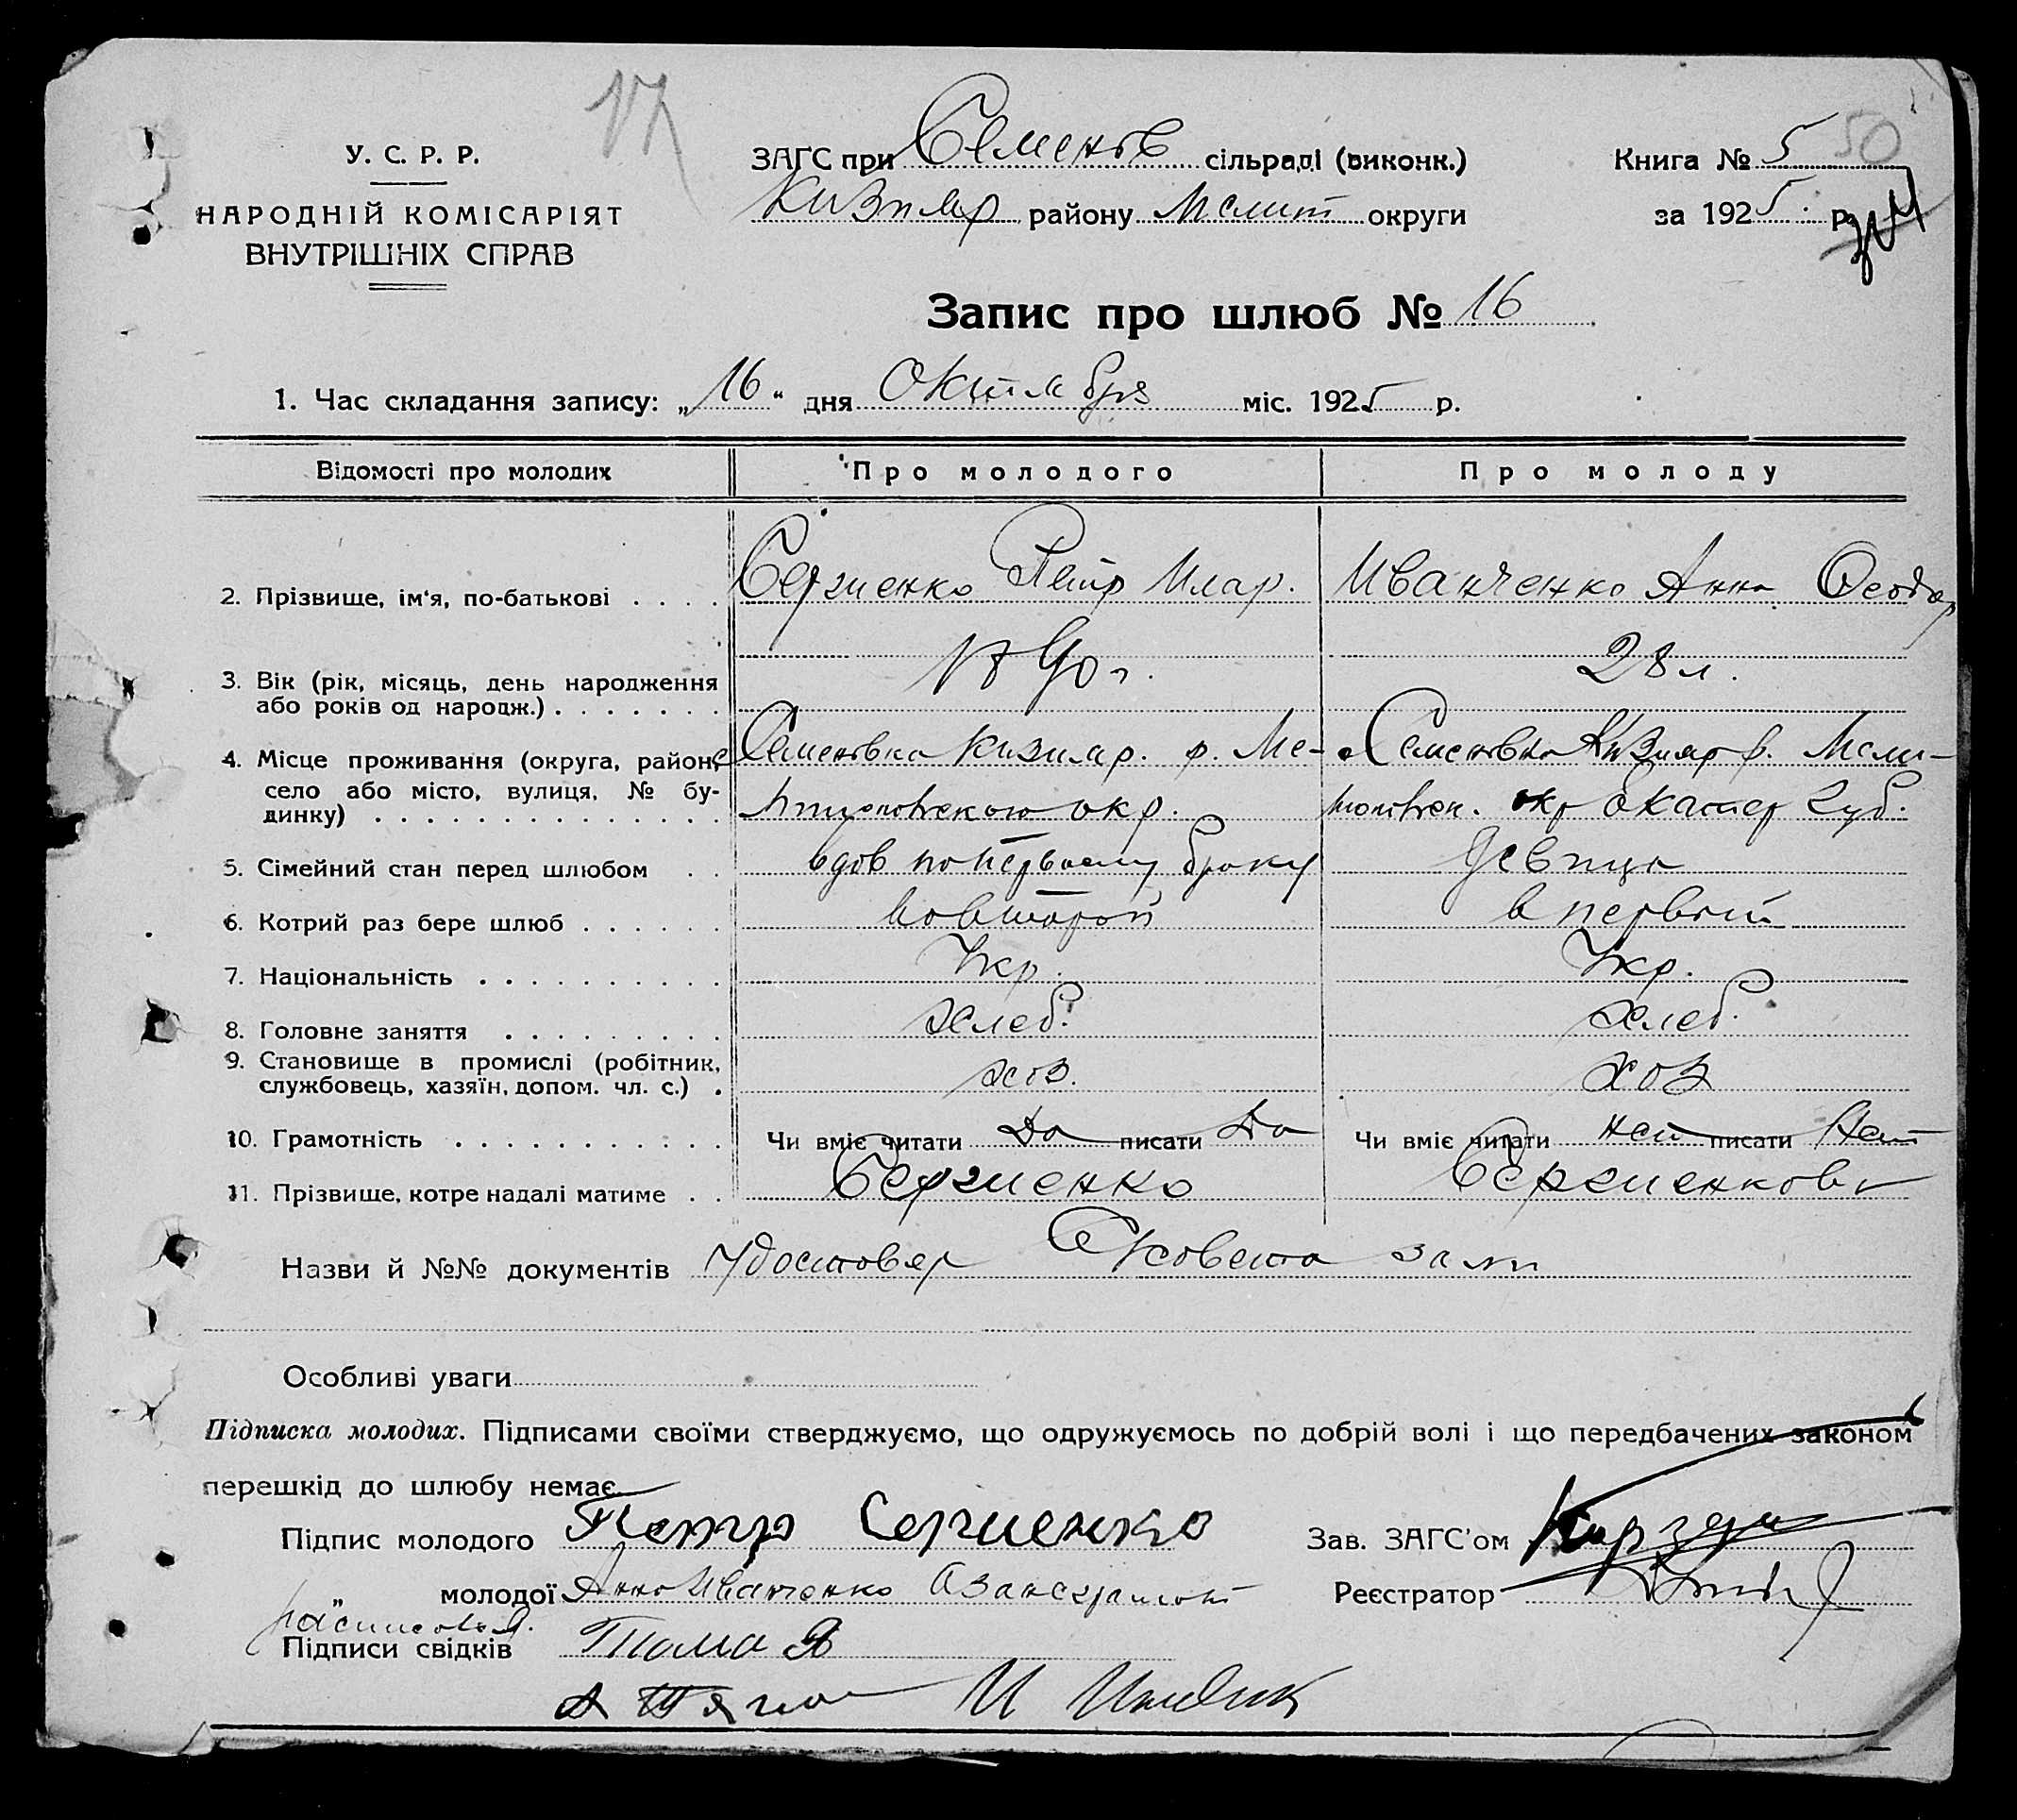 17
У. С. Р. Р.
НАРОДНІЙ КОМІСАРІЯТ
ВНУТРІШНІХ СПРАВ
ЗАГС при Семенов сільраді (виконк.)
Кизияр району Мелит округи
Книга № 5 50
за 1925 р.
Запис про шлюб № 16
1. Час складання запису: „16“ дня Октября міс. 1925 р.
Відомості про молодих Про молодого Про молоду
2. Прізвище, ім'я, по-батькові . . . . Сергиенко Петр Илар. Иванченко Анна Феодор
3. Вік (рік, місяць, день народження 1890 г. 28 л.
або років од народж.) . . . . . . .
4. Місце проживання (округа, район, с Семеновка Кизияр. р. Ме- с Семеновка Кизияр р. Мели-
село або місто, вулиця, № бу-
динку) . . . . . . . . . . . . . . литопольского окр. топольск. окр Екатер Губ.
5. Сімейний стан перед шлюбом . . вдов по первому браку девица
6. Котрий раз бере шлюб . . . . . . во второй в первый
7. Національність . . . . . . . . . . Укр. Укр.
8. Головне заняття . . . . . . . . . хлеб. хлеб.
9. Становище в промислі (робітник,
службовець, хазяїн, допом. чл. с.) . хоз. хоз
10. Грамотність . . . . . . . . . . . Чи вміє читати Да писати Да Чи вміє читати нет писати Нет
11. Прізвище, котре надалі матиме . . Сергиенко Сергиенкова
Назви й №№ документів Удостовер С/совета за №
Особливі уваги
Підписка молодих. Підписами своїми стверджуємо, що одружуємось по добрій волі і що передбачених законом
перешкід до шлюбу немає.
Підпис молодого Петр Сергиенко Зав. ЗАГС'ом
„ молодої Анна Иванченко А за неграмот Реєстратор
расписался.
Підписи свідків